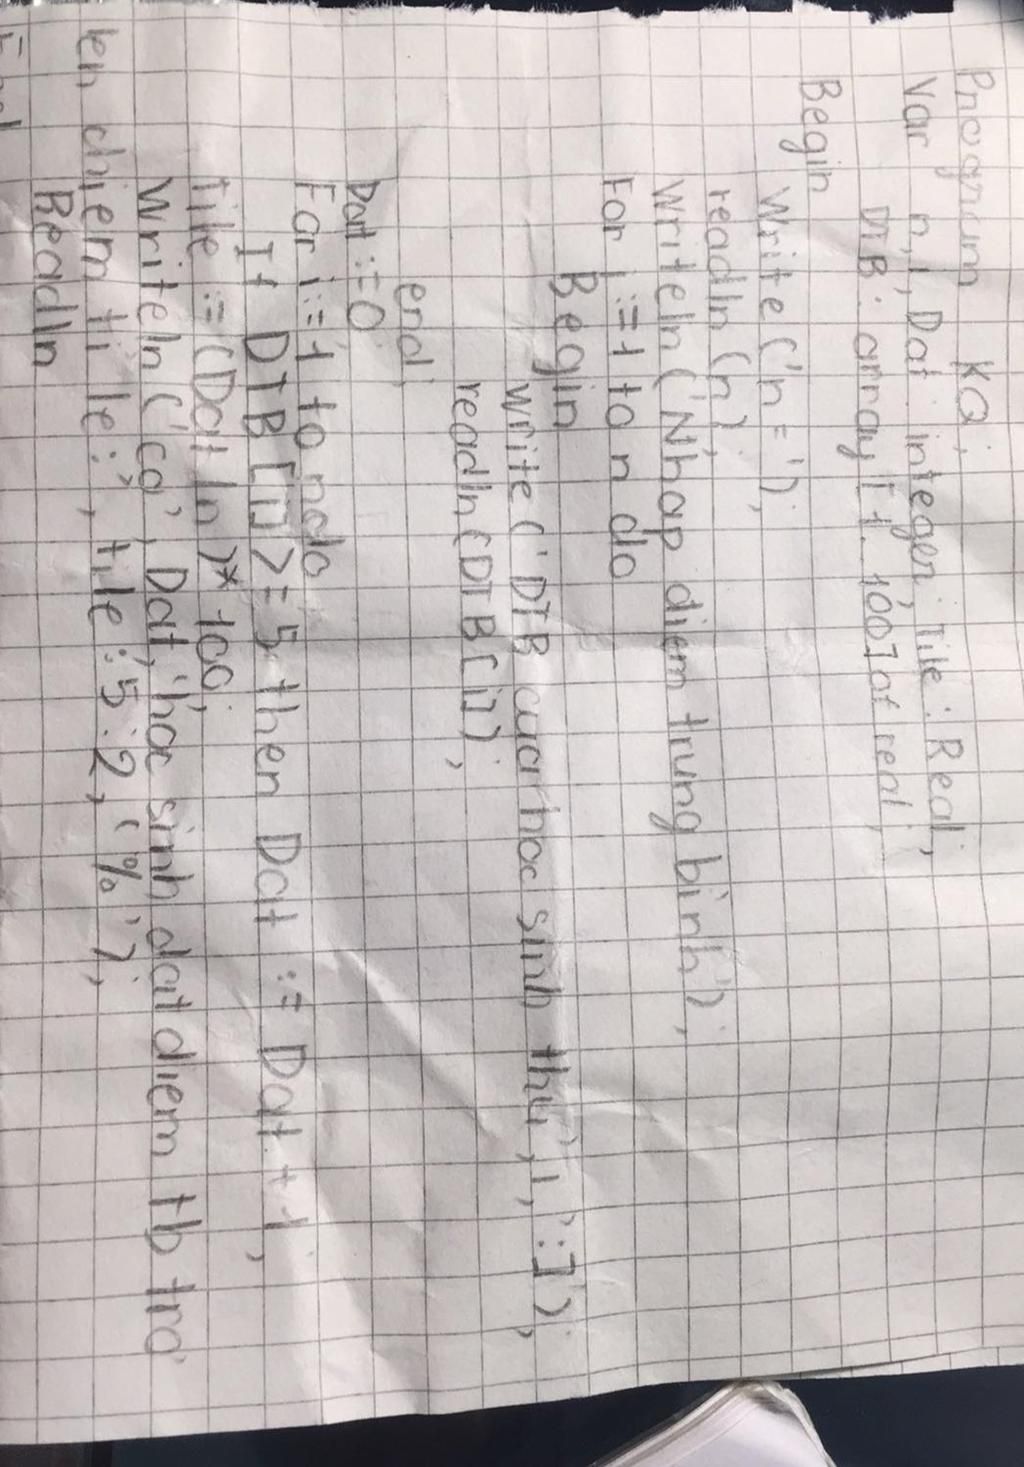 Program KQ;
Var n, i, Dat : integer; Tile : Real;
DTB : array [1..100] of real;
Begin
Write ('n = ');
readln (n);
Writeln ('Nhap diem trung binh');
For i := 1 to n do
Begin
write ('DTB cua hoc sinh thu', i, ':');
readln (DTB[i]);
end;
Dat := 0
For i := 1 to n do
If DTB [i] >= 5 then Dat := Dat + 1;
tile := (Dat / n) * 100;
Writeln ('co', Dat, 'hoc sinh dat diem tb tro
len chiem ti le:', tile : 5 : 2, '%');
Readln
End